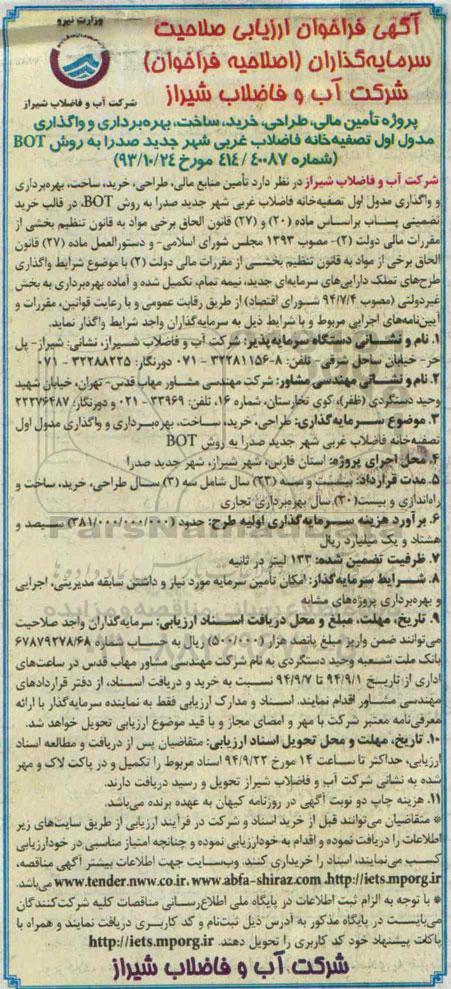 آگهی فراخوان ارزیابی صلاحیت
وزارت نیرو
سرمایه‌گذاران (اصلاحیه فراخوان)
شرکت آب و فاضلاب شیراز
شرکت آب و فاضلاب شیراز
پروژه تأمین مالی، طراحی، خرید، ساخت، بهره‌برداری و واگذاری
مدول اول تصفیه‌خانه فاضلاب غربی شهر جدید صدرا به روش BOT
(شماره ۴۱۴/۴۰۰۸۷ مورخ ۹۳/۱۰/۲۴)
شرکت آب و فاضلاب شیراز در نظر دارد تأمین منابع مالی، طراحی، خرید، ساخت، بهره‌برداری
و واگذاری مدول اول تصفیه‌خانه فاضلاب غربی شهر جدید صدرا به روش BOT، در قالب خرید
تضمینی پساب براساس ماده (۲۰) و (۲۷) قانون الحاق برخی مواد به قانون تنظیم بخشی از
مقررات مالی دولت (۲)- مصوب ۱۳۹۳ مجلس شورای اسلامی- و دستورالعمل ماده (۲۷) قانون
الحاق برخی از مواد به قانون تنظیم بخشی از مقررات مالی دولت (۲) با موضوع شرایط واگذاری
طرح‌های تملک دارایی‌های سرمایه‌ای جدید، نیمه تمام، تکمیل شده و آماده بهره‌برداری به بخش
غیردولتی (مصوب ۹۴/۷/۴ شورای اقتصاد) از طریق رقابت عمومی و با رعایت قوانین، مقررات و
آیین‌نامه‌های اجرایی مربوط و با شرایط ذیل به سرمایه‌گذاران واجد شرایط واگذار نماید.
۱. نام و نشانی دستگاه سرمایه‌پذیر: شرکت آب و فاضلاب شیراز، نشانی: شیراز- پل
حر- خیابان ساحل شرقی- تلفن: ۸-۳۲۲۸۱۱۵۶ - ۰۷۱ دورنگار: ۳۲۲۸۸۲۳۵ - ۰۷۱
۲. نام و نشانی مهندسی مشاور: شرکت مهندسی مشاور مهاب قدس- تهران، خیابان شهید
وحید دستگردی (ظفر)، کوی تخارستان، شماره ۱۶، تلفن: ۳۳۹۶۹ - ۰۲۱ و دورنگار: ۲۲۲۷۶۴۸۷
۳. موضوع سرمایه‌گذاری: طراحی، خرید، ساخت، بهره‌برداری و واگذاری مدول اول
تصفیه‌خانه فاضلاب غربی شهر جدید صدرا به روش BOT
۴. محل اجرای پروژه: استان فارس، شهر شیراز، شهر جدید صدرا
۵. مدت قرارداد: بیست و سه (۲۳) سال شامل سه (۳) سال طراحی، خرید، ساخت و
راه‌اندازی و بیست (۲۰) سال بهره‌برداری تجاری
۶. برآورد هزینه سرمایه‌گذاری اولیه طرح: حدود (۳۸۱/۰۰۰/۰۰۰/۰۰۰) سیصد و
هشتاد و یک میلیارد ریال
۷. ظرفیت تضمین شده: ۱۳۳ لیتر در ثانیه
۸. شرایط سرمایه‌گذار: امکان تأمین سرمایه مورد نیاز و داشتن سابقه مدیریتی، اجرایی
و بهره‌برداری پروژه‌های مشابه
۹. تاریخ، مهلت، مبلغ و محل دریافت اسناد ارزیابی: سرمایه‌گذاران واجد صلاحیت
می‌توانند ضمن واریز مبلغ پانصد هزار (۵۰۰/۰۰۰) ریال به حساب شماره ۶۷۸۷۹۲۷۸/۶۸
بانک ملت شعبه وحید دستگردی به نام شرکت مهندسی مشاور مهاب قدس در ساعت‌های
اداری از تاریخ ۹۴/۹/۱ تا ۹۴/۹/۷ نسبت به خرید و دریافت اسناد، از دفتر قراردادهای
مهندسی مشاور اقدام نمایند. اسناد و مدارک ارزیابی فقط به نماینده سرمایه‌گذار با ارائه
معرفی‌نامه معتبر شرکت با مهر و امضای مجاز و با قید موضوع ارزیابی تحویل خواهد شد.
۱۰. تاریخ، مهلت و محل تحویل اسناد ارزیابی: متقاضیان پس از دریافت و مطالعه اسناد
ارزیابی، حداکثر تا ساعت ۱۴ مورخ ۹۴/۹/۲۲ اسناد مربوط را تکمیل و در پاکت لاک و مهر
شده به نشانی شرکت آب و فاضلاب شیراز تحویل و رسید دریافت دارند.
۱۱. هزینه چاپ دو نوبت آگهی در روزنامه کیهان به عهده برنده می‌باشد.
* متقاضیان می‌توانند قبل از خرید اسناد و شرکت در فرآیند ارزیابی از طریق سایت‌های زیر
اطلاعات را دریافت نموده و اقدام به خودارزیابی نموده و چنانچه امتیاز مناسبی در خودارزیابی
کسب می‌نمایند، اسناد را خریداری کنند. وب‌سایت جهت اطلاعات بیشتر آگهی مناقصه،
www.tender.nww.co.ir، www.abfa-shiraz.com ،http://iets.mporg.ir می‌باشد.
* با توجه به الزام ثبت اطلاعات در پایگاه ملی اطلاع‌رسانی مناقصات کلیه شرکت‌کنندگان
می‌بایست در پایگاه مذکور به آدرس ذیل ثبت‌نام و کد کاربری دریافت نمایند و همراه با
پاکات پیشنهاد خود کد کاربری را تحویل دهند. http://iets.mporg.ir
شرکت آب و فاضلاب شیراز